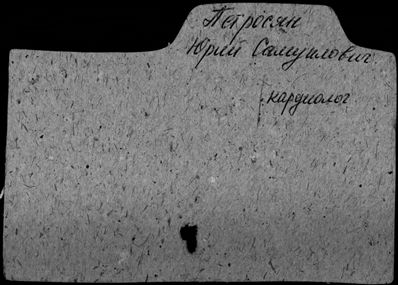 Петросян
Юрий Самуилович
кардиолог